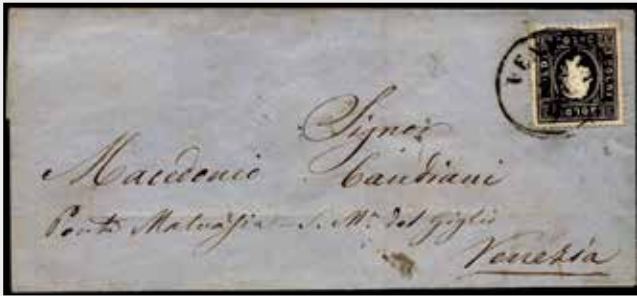 VEN
SOLDI
Signor
Macedonio Candiani
Ponte Malvasia S. Mª del Giglio
Venezia